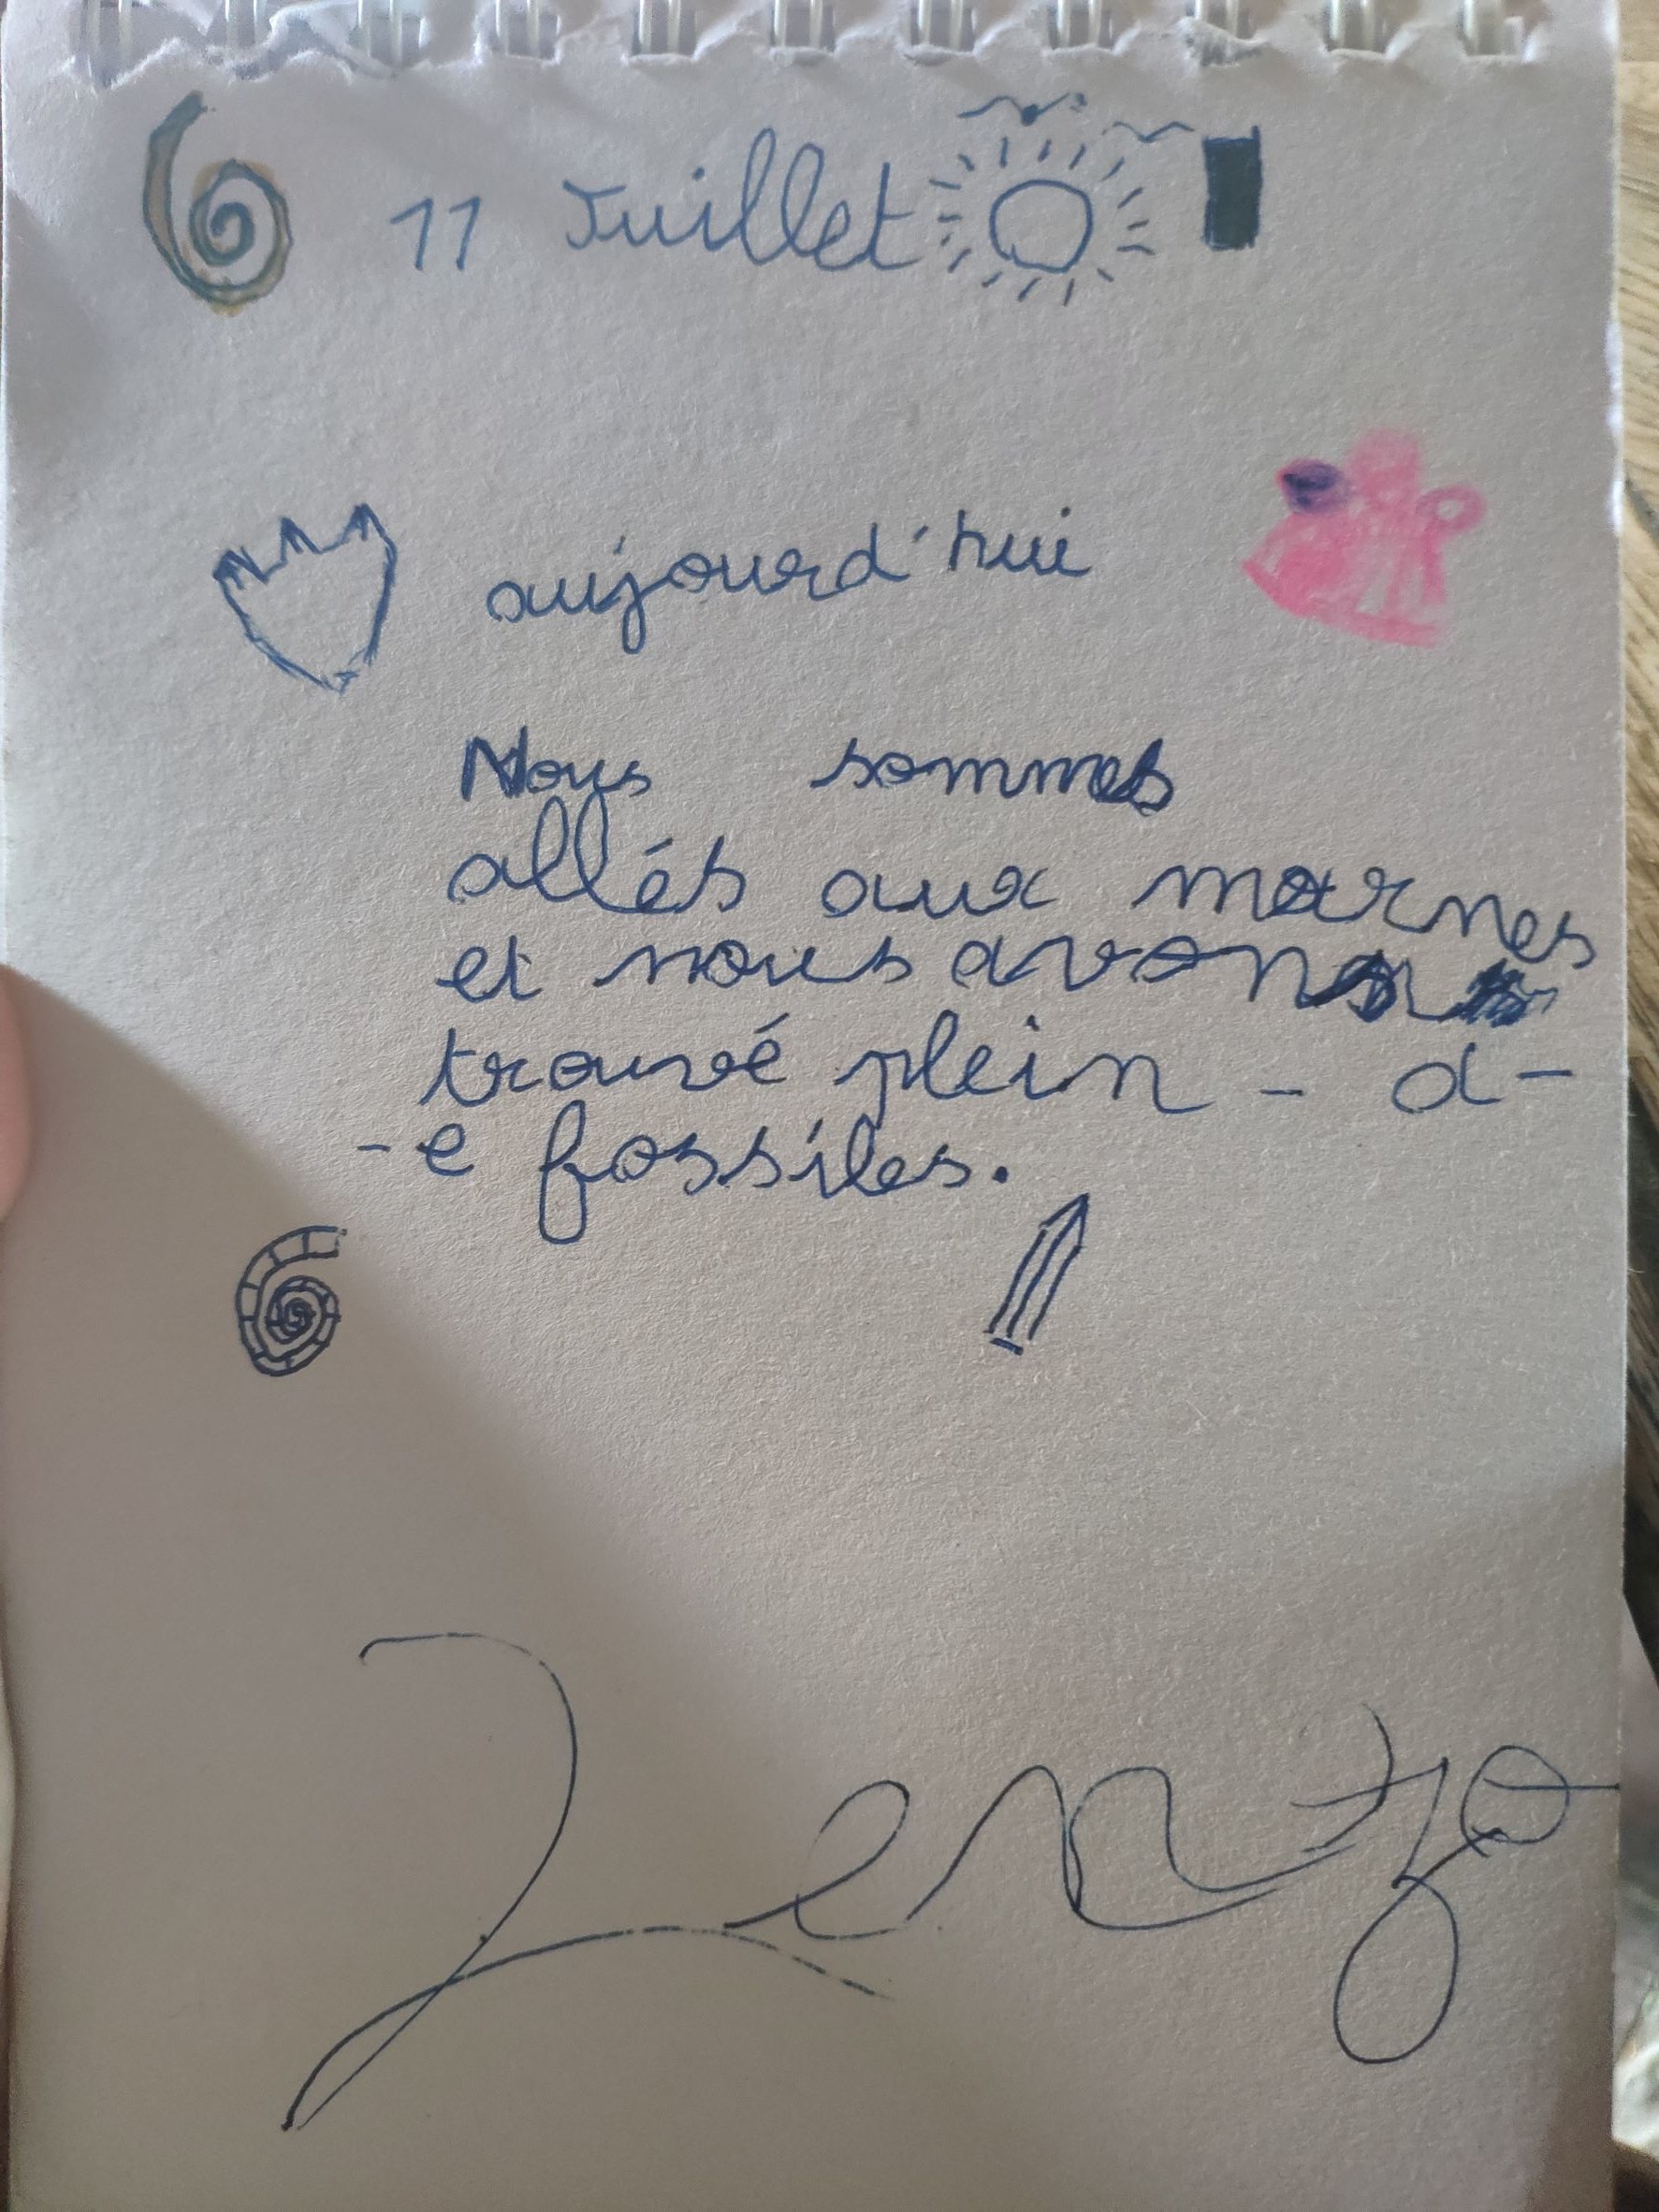 11 Juillet
aujourd'hui
Nous sommes
allés aux marnes
et nous avons
trouvé plein - d-
-e fossiles.
Kenzo